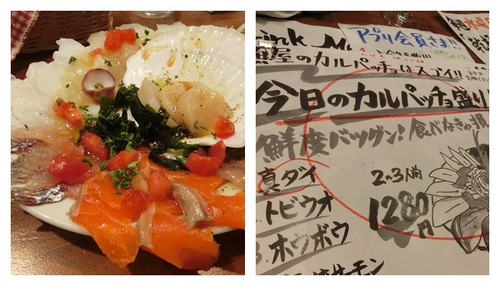 ink M
アプリ会員さま!!
屋のカルパッチョはスゴイ!!
今日のカルパッチョ盛り
鮮度バツグン!食べなきゃ損
真ダイ
2~3人前
トビウオ
1280円
3.ホウボウ
サーモン